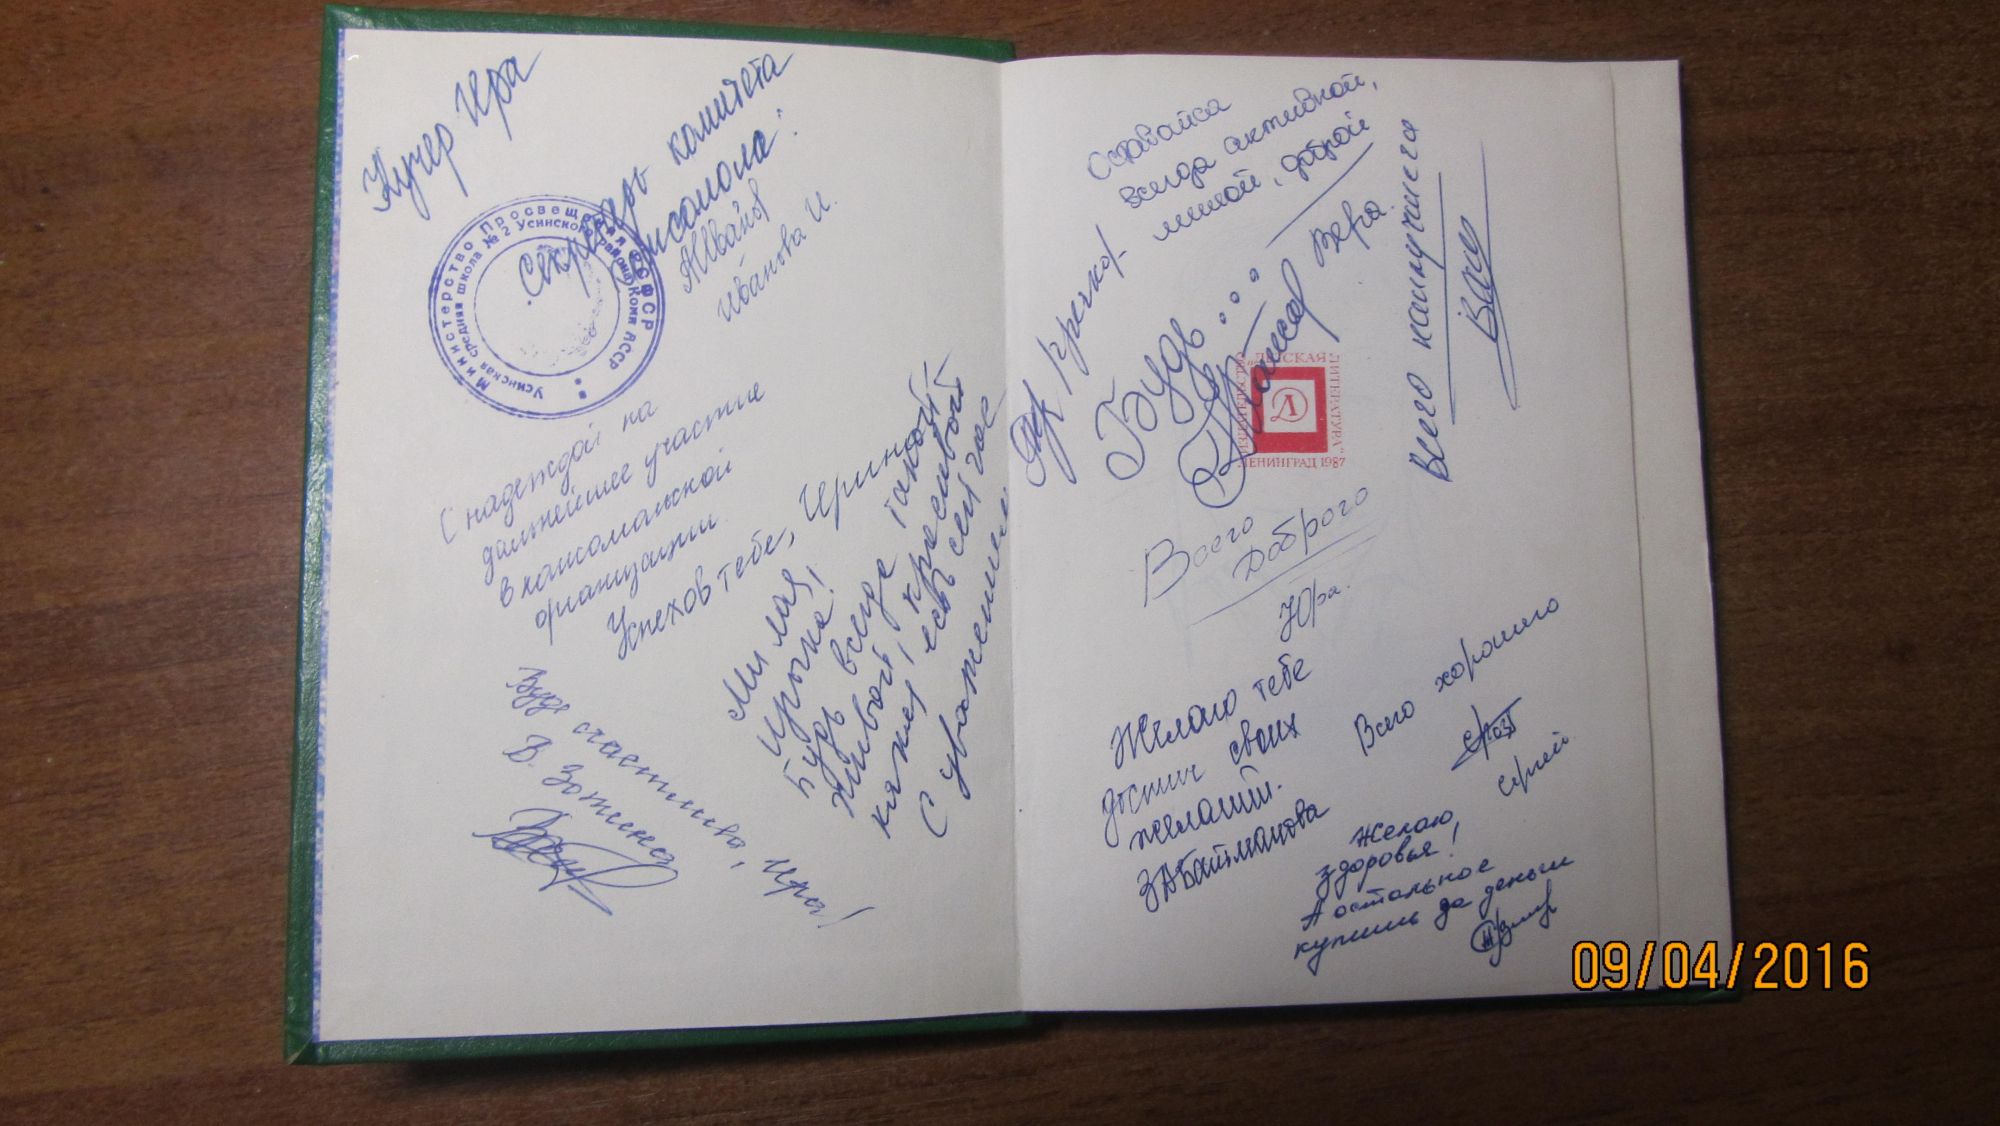 Кучер Ира
Секретарь комитета
комсомола:
Иванова И.
Министерство Просвещения РСФСР
Усинская средняя школа № 2 Усинского района Коми АССР
С надеждой на
дальнейшее участие
в комсомольской
организации
Успехов тебе, Ириной
Милая
Ирычка!
Будь всегда такой
живой, красивой
какая есть сейчас
С уважением
Будь счастлива, Ира!
Оставайся
всегда активной,
милой, доброй
Вера.
Будь ...
ИЗДАТЕЛЬСТВО „ДЕТСКАЯ ЛИТЕРАТУРА“
Л
ЛЕНИНГРАД 1987
Всего наилучшего
Всего
Доброго
Юра.
Желаю тебе
достич своих
желаний.
Всего хорошего
Сергей
Желаю
здоровья!
А остальное
купишь за деньги
09/04/2016